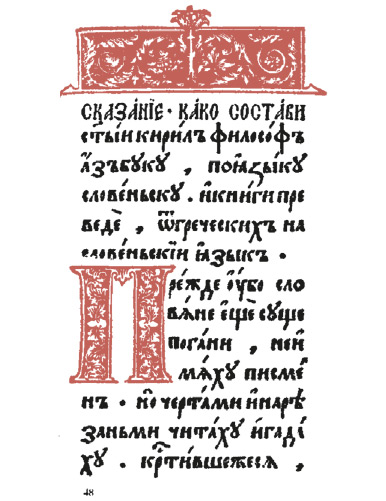 СКАЗА́НЇЕ · КА́КО СОСТА́ВИ
ст҃ы́и кири́лъ філосо́фъ
а҆́збꙋкꙋ , по ꙗ҆зы́кꙋ
слове́ньскꙋ . и҆ кни́ги пре
ведѐ , ѿ грече́скихъ на
слове́ньскїи ꙗ҆зыкъ .
Пре́жде ᲂу҆́бо сло
вѧ́не є҆щѐ сꙋще
пога́ни , не и҆
мѧ́хꙋ писме́
нъ . но̀ черта́ми и҆ нарѣ́
заньми чита́хꙋ и҆ гада́
хꙋ . кр҃ти́вшежесѧ ,
48